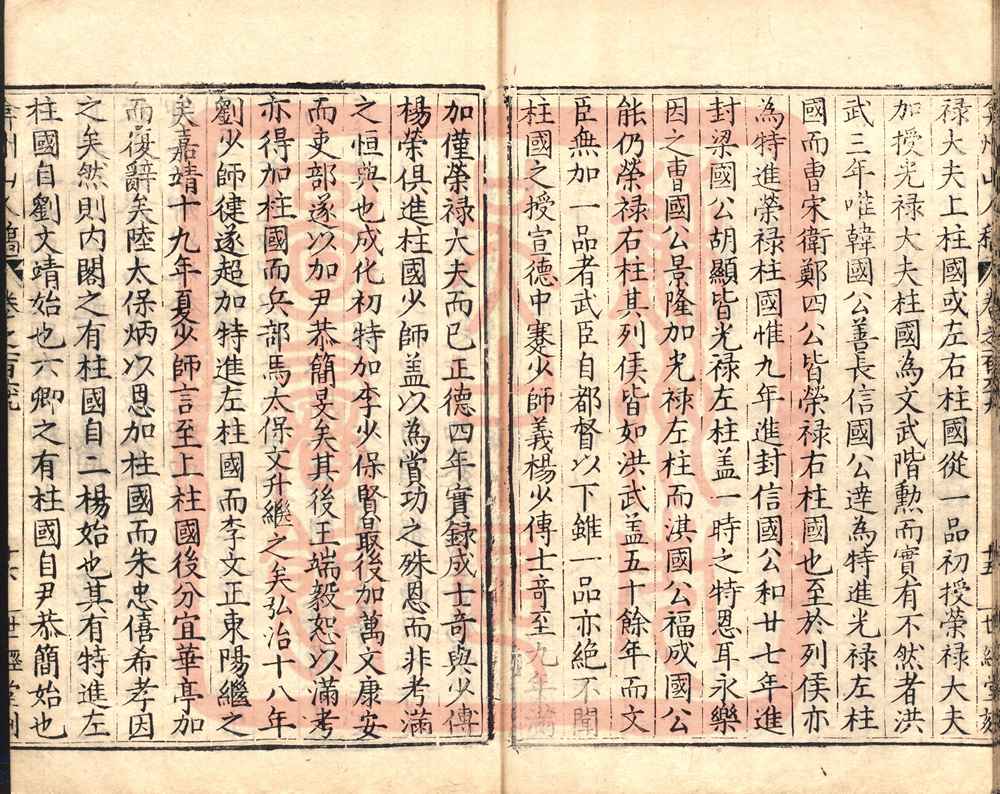 弇州山人稿 卷之一百六十九 十五 世經堂刻
禄大夫上柱國或左右柱國從一品初授榮禄大夫
加授光禄大夫柱國為文武階勲而實有不然者洪
武三年唯韓國公善長信國公達為特進光禄左柱
國而曹宋衛鄭四公皆榮禄右柱國也至於列侯亦
為特進榮禄柱國惟九年進封信國公和廿七年進
封梁國公胡顯皆光禄左柱盖一時之特恩耳永樂
因之曹國公景隆加光禄左柱而淇國公福成國公
能仍榮禄右柱其列侯皆如洪武盖五十餘年而文
臣無加一品者武臣自都督以下雖一品亦絶不聞
柱國之授宣德中蹇少師義楊少傅士竒至九年滿
加僅榮禄大夫而已正德四年實録成士竒與少傅
楊榮俱進柱國少師盖以為賞功之殊恩而非考滿
之恒典也成化初特加李少保賢最後加萬文康安
而吏部遂以加尹恭簡旻矣其後王端毅恕以滿考
亦得加柱國而兵部馬太保文升繼之矣弘治十八年
劉少師健遂超加特進左柱國而李文正東陽繼之
矣嘉靖十九年夏少師言至上柱國後分宜華亭加
而復辭矣陸太保炳以恩加柱國而朱忠僖希孝因
之矣然則内閣之有柱國自二楊始也其有特進左
柱國自劉文靖始也六卿之有柱國自尹恭簡始也
弇州山人稿 卷之一百六十九 十六 世經堂刻